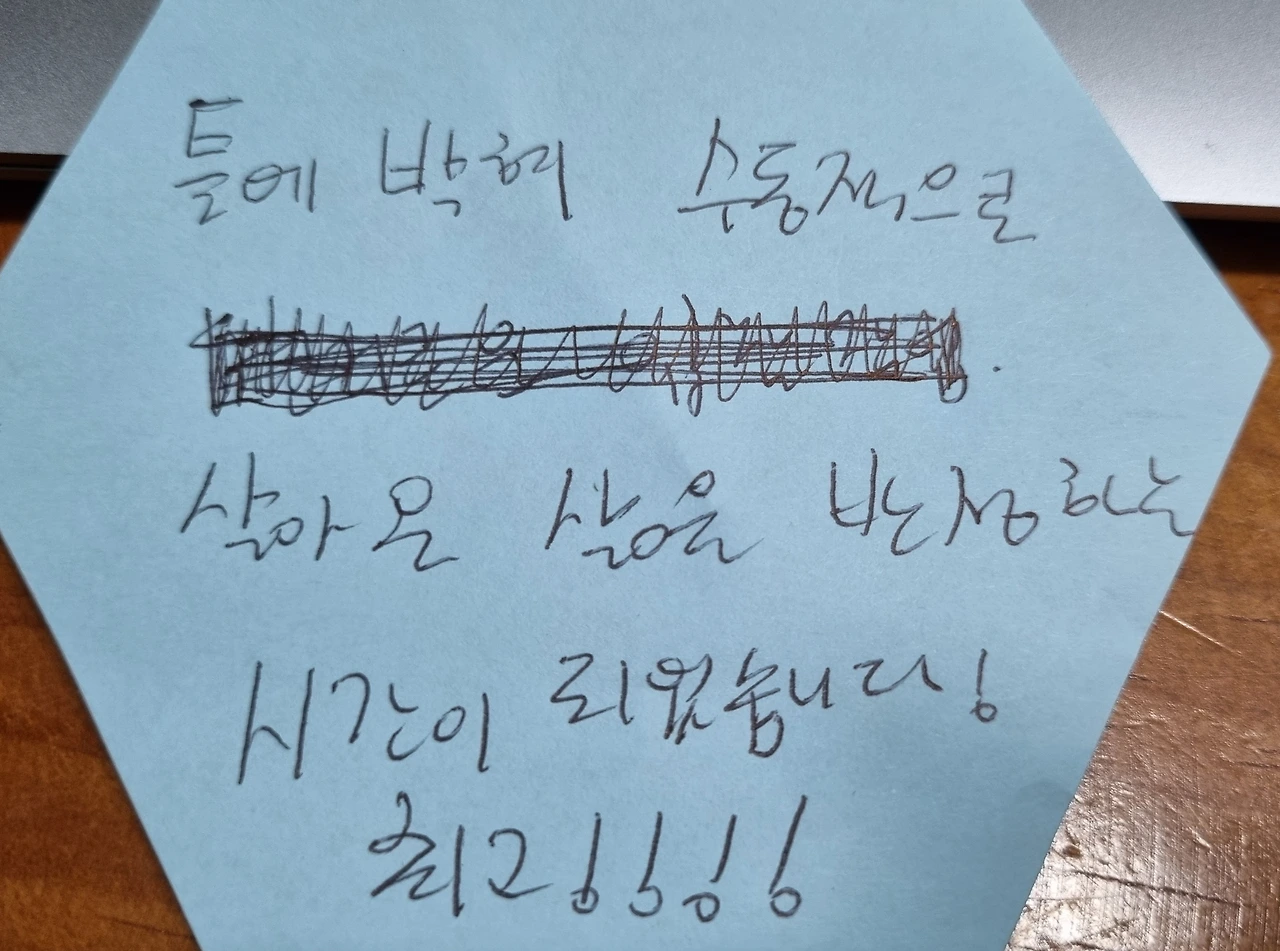 틀에 박혀 수동적으로
살아온 삶을 반성하는
시간이 되었습니다!
최고!!!!